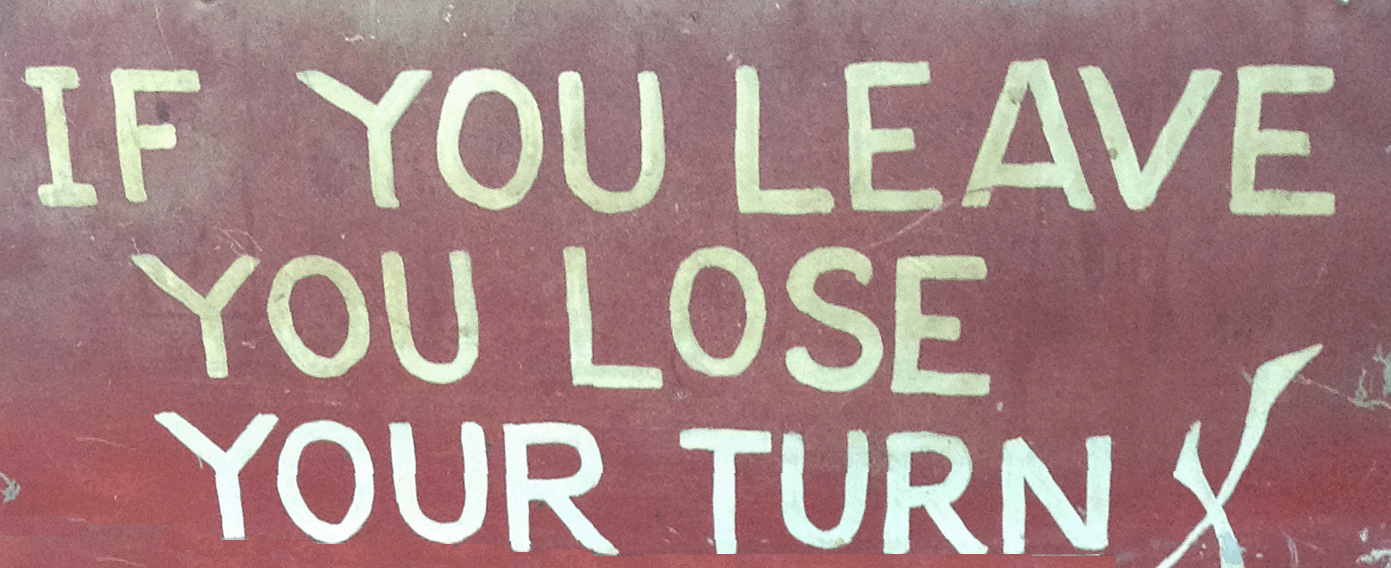 IF YOU LEAVE
YOU LOSE
YOUR TURN X